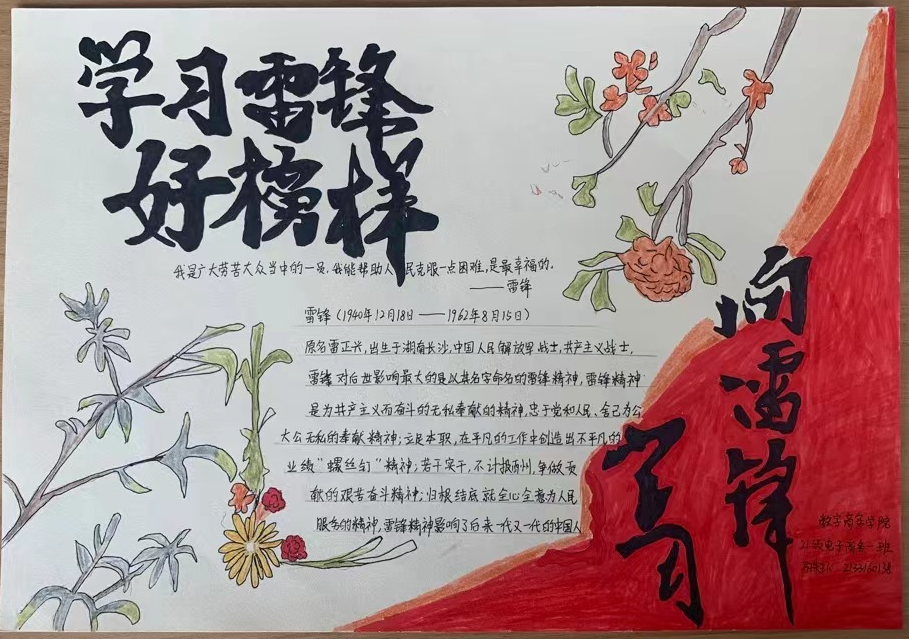 学习雷锋
好榜样
我是广大劳苦大众当中的一员,我能帮助人民克服一点困难,是最幸福的。
——雷锋
雷锋(1940年12月18日——1962年8月15日)
原名雷正兴,出生于湖南长沙,中国人民解放军战士,共产主义战士,
雷锋对后世影响最大的是以其名字命名的雷锋精神,雷锋精神
是为共产主义而奋斗的无私奉献的精神,忠于党和人民、舍己为公
大公无私的奉献精神;立足本职,在平凡的工作中创造出不平凡的
业绩"螺丝钉"精神;苦干实干,不计报酬,争做贡
献的艰苦奋斗精神;归根结底就全心全意为人民
服务的精神,雷锋精神影响了后来一代又一代的中国人
向雷锋
学习
数字商务学院
班